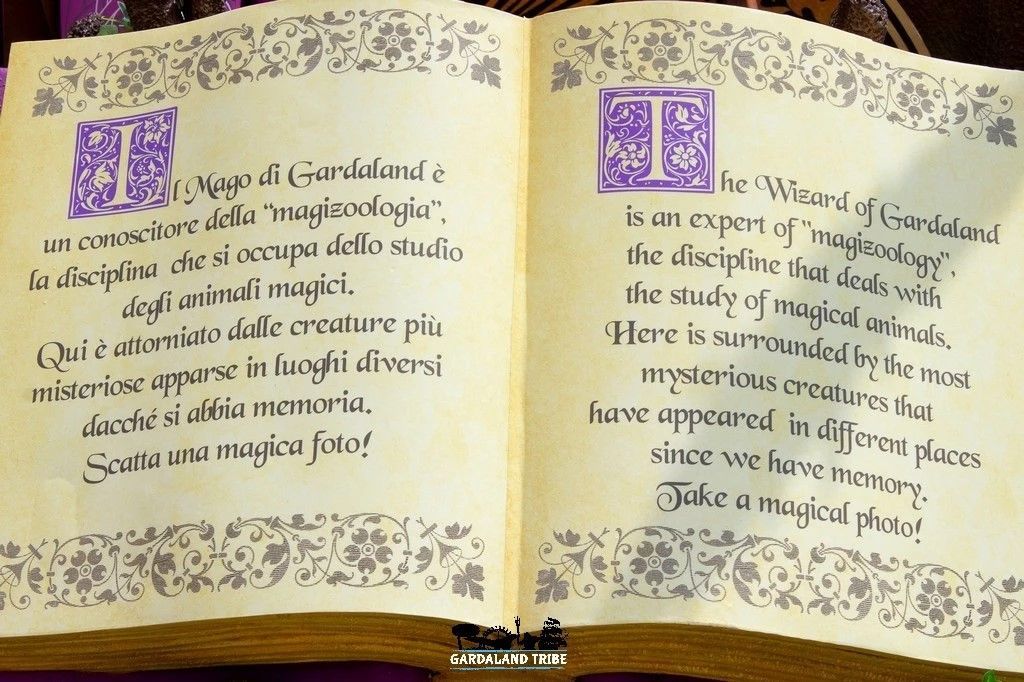 Il Mago di Gardaland è
un conoscitore della “magizoologia”,
la disciplina che si occupa dello studio
degli animali magici.
Qui è attorniato dalle creature più
misteriose apparse in luoghi diversi
dacché si abbia memoria.
Scatta una magica foto!
The Wizard of Gardaland
is an expert of "magizoology",
the discipline that deals with
the study of magical animals.
Here is surrounded by the most
mysterious creatures that
have appeared in different places
since we have memory.
Take a magical photo!
GARDALAND TRIBE